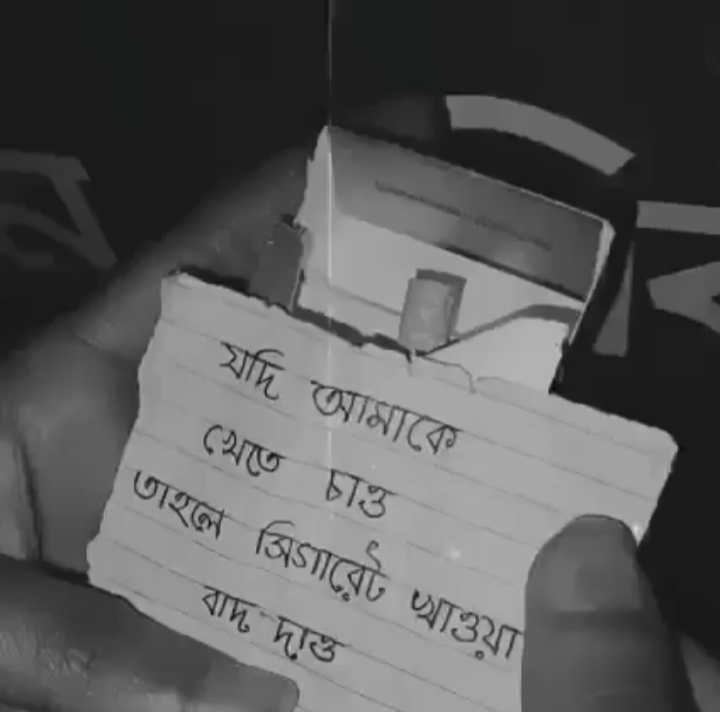 যদি আমাকে
খেতে চাও
তাহলে সিগারেট খাওয়া
বাদ দাও